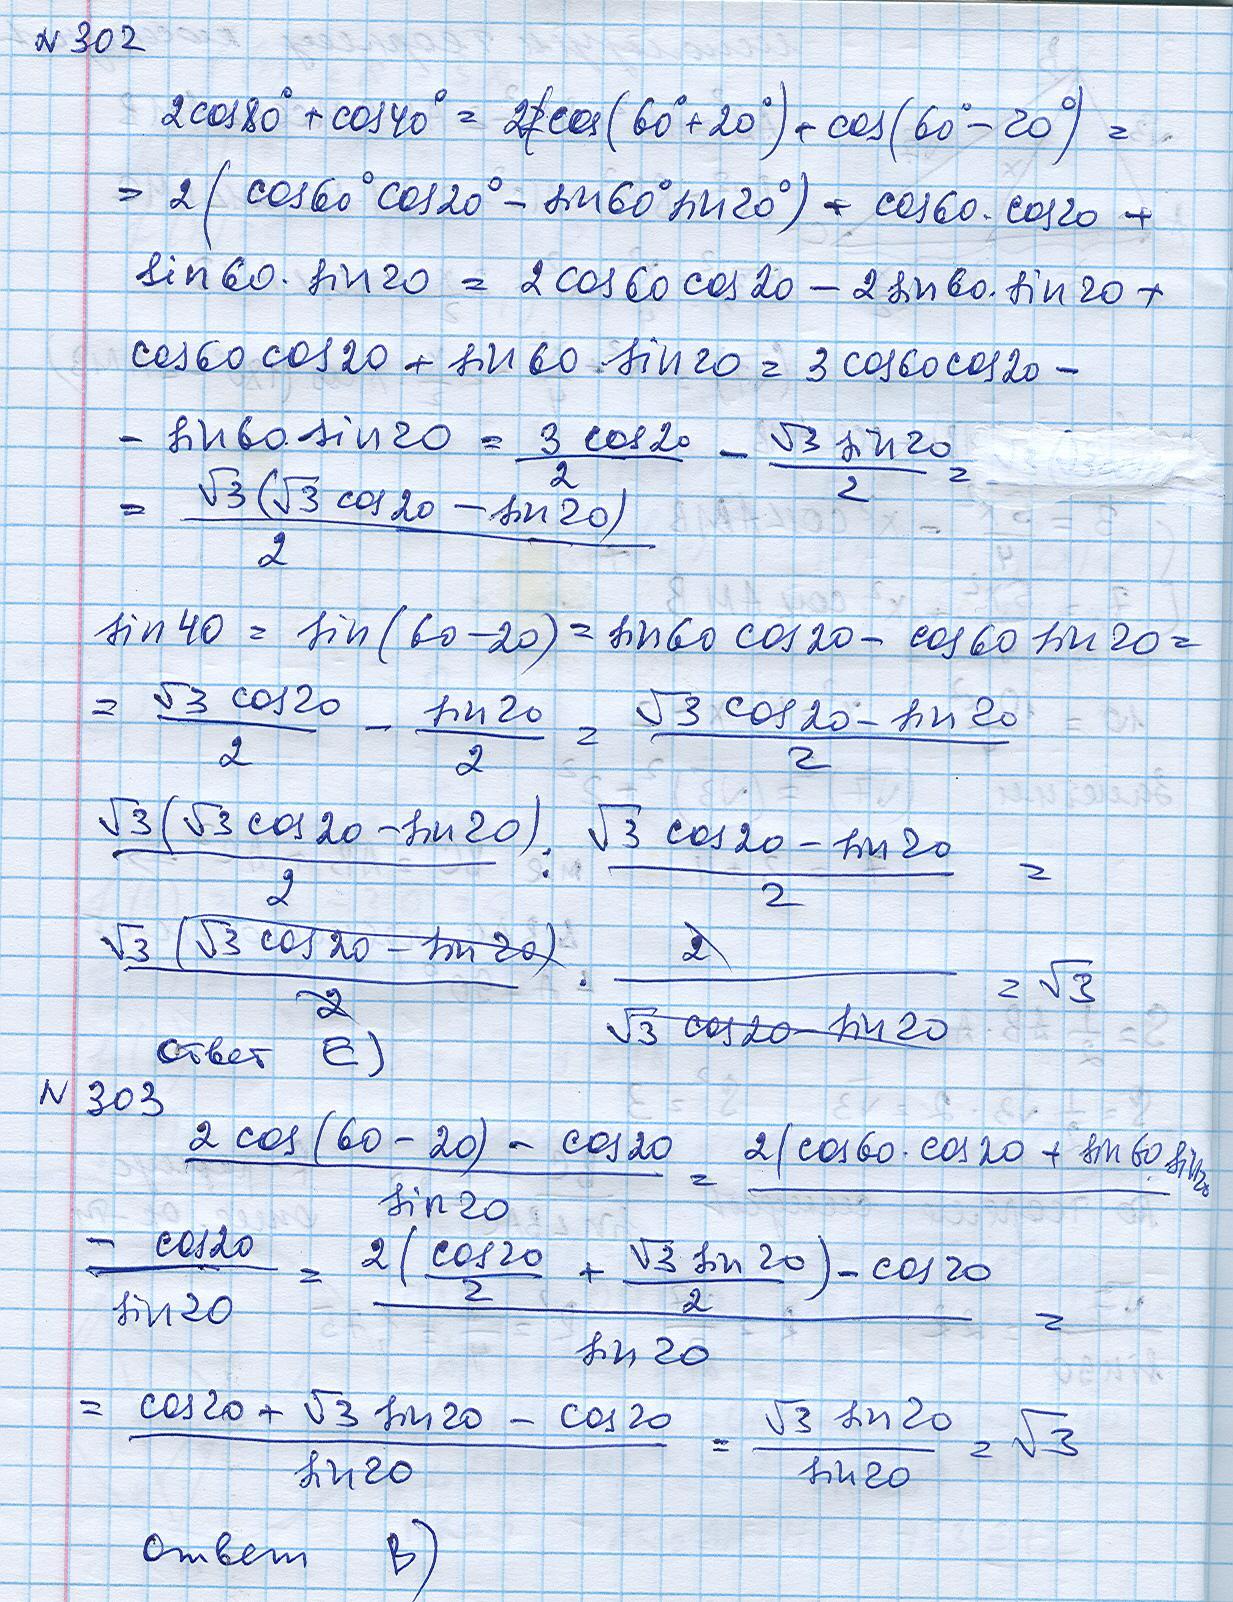 N 302
2cos80° + cos40° = 2cos(60°+20°) + cos(60°-20°) =
= 2(cos60°cos20° - sin60°sin20°) + cos60·cos20 +
sin60·sin20 = 2cos60cos20 - 2sin60·sin20 +
cos60cos20 + sin60·sin20 = 3cos60cos20 -
- sin60·sin20 = 3cos20/2 - √3 sin20/2 =
= √3(√3cos20 - sin20)/2
sin40 = sin(60-20) = sin60cos20 - cos60sin20 =
= √3cos20/2 - sin20/2 = (√3cos20 - sin20)/2
√3(√3cos20 - sin20)/2 : (√3cos20 - sin20)/2 =
√3(√3cos20 - sin20)/2 · 2/(√3cos20 - sin20) = √3
ответ E)
N 303
(2cos(60-20) - cos20)/sin20 = 2(cos60·cos20 + sin60·sin20
- cos20/sin20 = (2(cos20/2 + √3 sin20/2) - cos20)/sin20 =
= (cos20 + √3 sin20 - cos20)/sin20 = √3 sin20/sin20 = √3
ответ В)